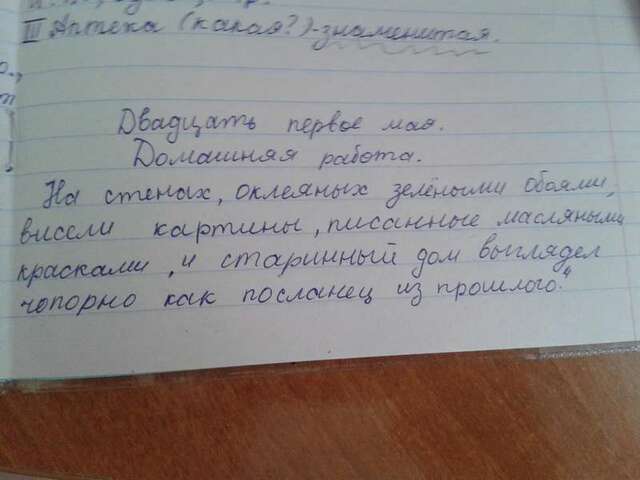 III Аптека (какая?)-знаменитая.
Двадцать первое мая.
Домашняя работа.
На стенах, оклеяных зелёными обоями,
висели картины, писанные масляными
красками, и старинный дом выглядел
чопорно как посланец из прошлого."